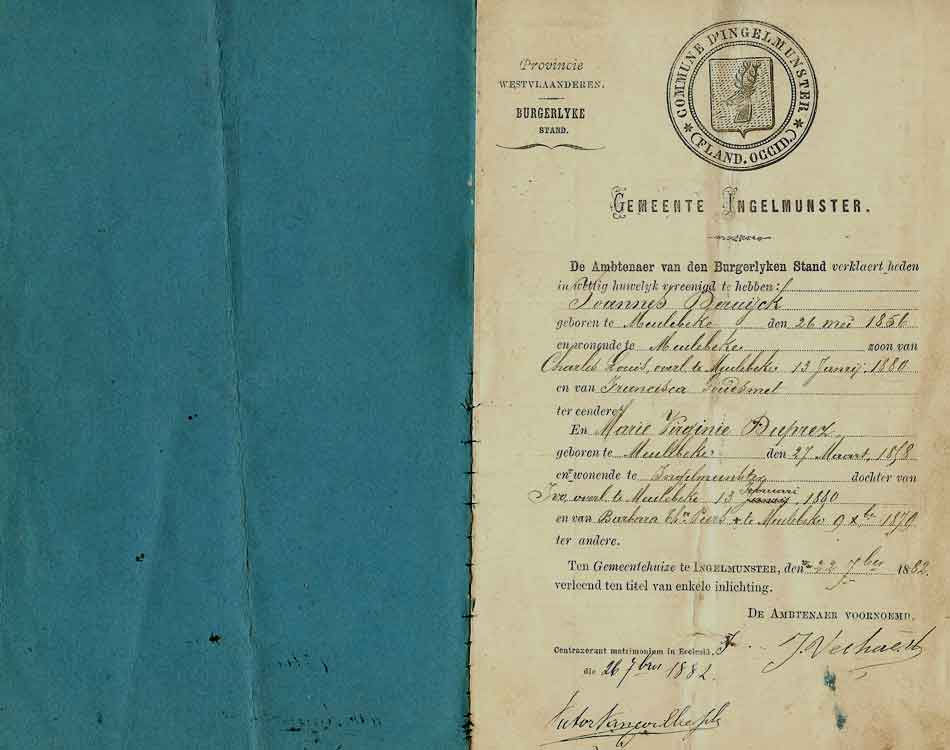 Provincie
WESTVLAANDEREN.
BURGERLYKE
STAND.
COMMUNE D'INGELMUNSTER
(FLAND. OCCID.)
GEMEENTE INGELMUNSTER.
De Ambtenaer van den Burgerlyken Stand verklaert heden
in wettig huwelyk vereenigd te hebben:
Joannes
geboren te Meulebeke den 26 mei 1856
en wonende te Meulebeke zoon van
Charles Louis, overl. te Meulebeke 13 Junij 1880
en van Francisca
ter eendere
En Marie Virginie Duprez
geboren te Meulebeke den 27 Maart 1858
en wonende te Ingelmunster dochter van
Ivo, overl. te Meulebeke 13 februari 1880
en van Barbara Peers te Meulebeke 9 Xbre 1870
ter andere.
Ten Gemeentehuize te INGELMUNSTER, den 22 7ber 1882.
verleend ten titel van enkele inlichting.
DE AMBTENAER VOORNOEMD.
Contraxerunt matrimonium in Ecclesiâ,
die 26 7bris 1882.